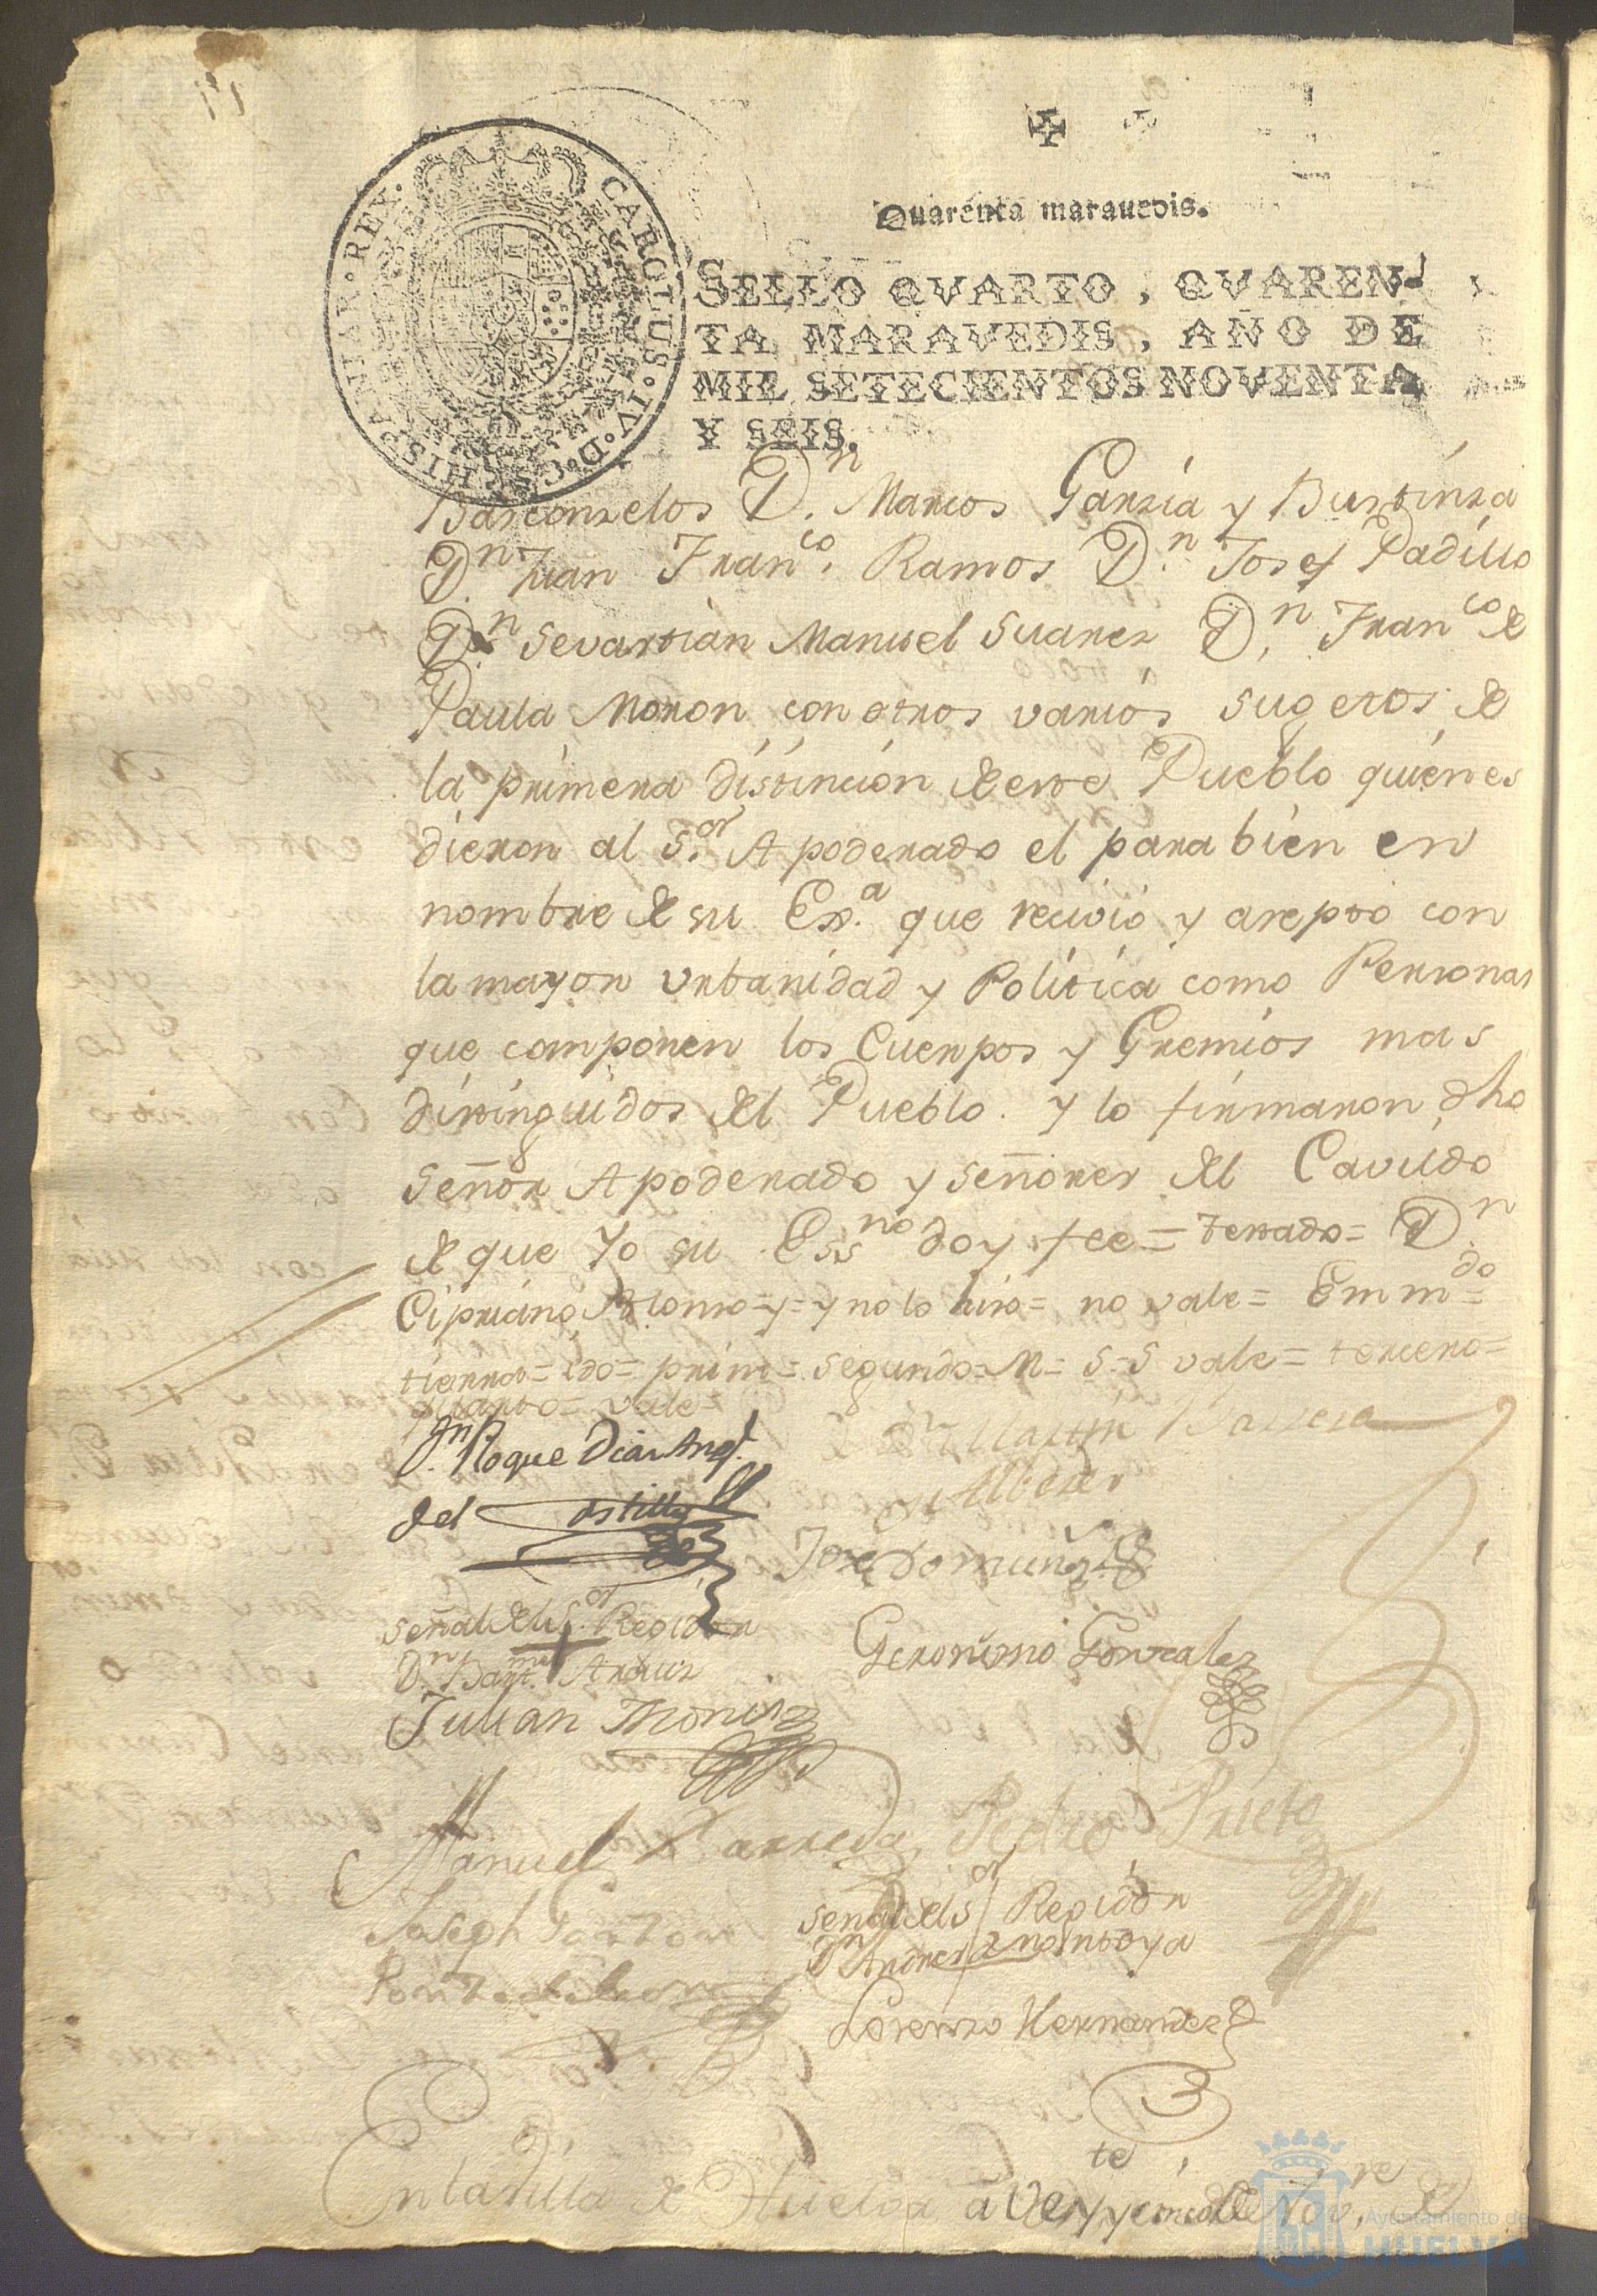 Quarenta marauedis.
SELLO QVARTO, QVAREN-
TA MARAVEDIS, AÑO DE
MIL SETECIENTOS NOVENTA
Y SEIS.
CAROLUS·IV·D·G·HISPANIAR·REX·
Basconzelos Dn. Marcos Garzia y Bustinza
Dn Juan Franco. Ramos Dn. Josef Padilla
Dn. Sevastian Manuel Suarez Dn. Franco de
Paula Moron con otros varios sugetos de
la primera distincion de este Pueblo quienes
dieron al Sor. Apoderado el para bien en
nombre de su Exa. que recivio y azepto con
la mayor urbanidad y Politica como Personas
que componen los Cuerpos y Gremios mas
distinguidos del Pueblo. y lo firmaron dho
Señor Apoderado y señores del Cavildo
de que Yo su Essno doy fee = testado = Dn
Cipriano Alonso = y = y no lo hizo = no vale = Emmdo =
= ido = prim = segundo = n = s = s vale = tercero =
quarto = vale =
Dn. Roque Diaz Angl.
del Castillo
Dr Martin Barrera
Jose Domuñoz
señal del Sor. Regidor
Dn Barme. Arquiz
Geronimo Gonzalez
Julian Thoniz
Manuel Barreda
Pedro Prieto
Joseph
Ponze de Leon
señal del Sor Regidor
Dn Andres Montoya
Lorenzo Hernandez
En la Villa de Huelva a veinte y cinco de Novre. de
Ayuntamiento de
HUELVA